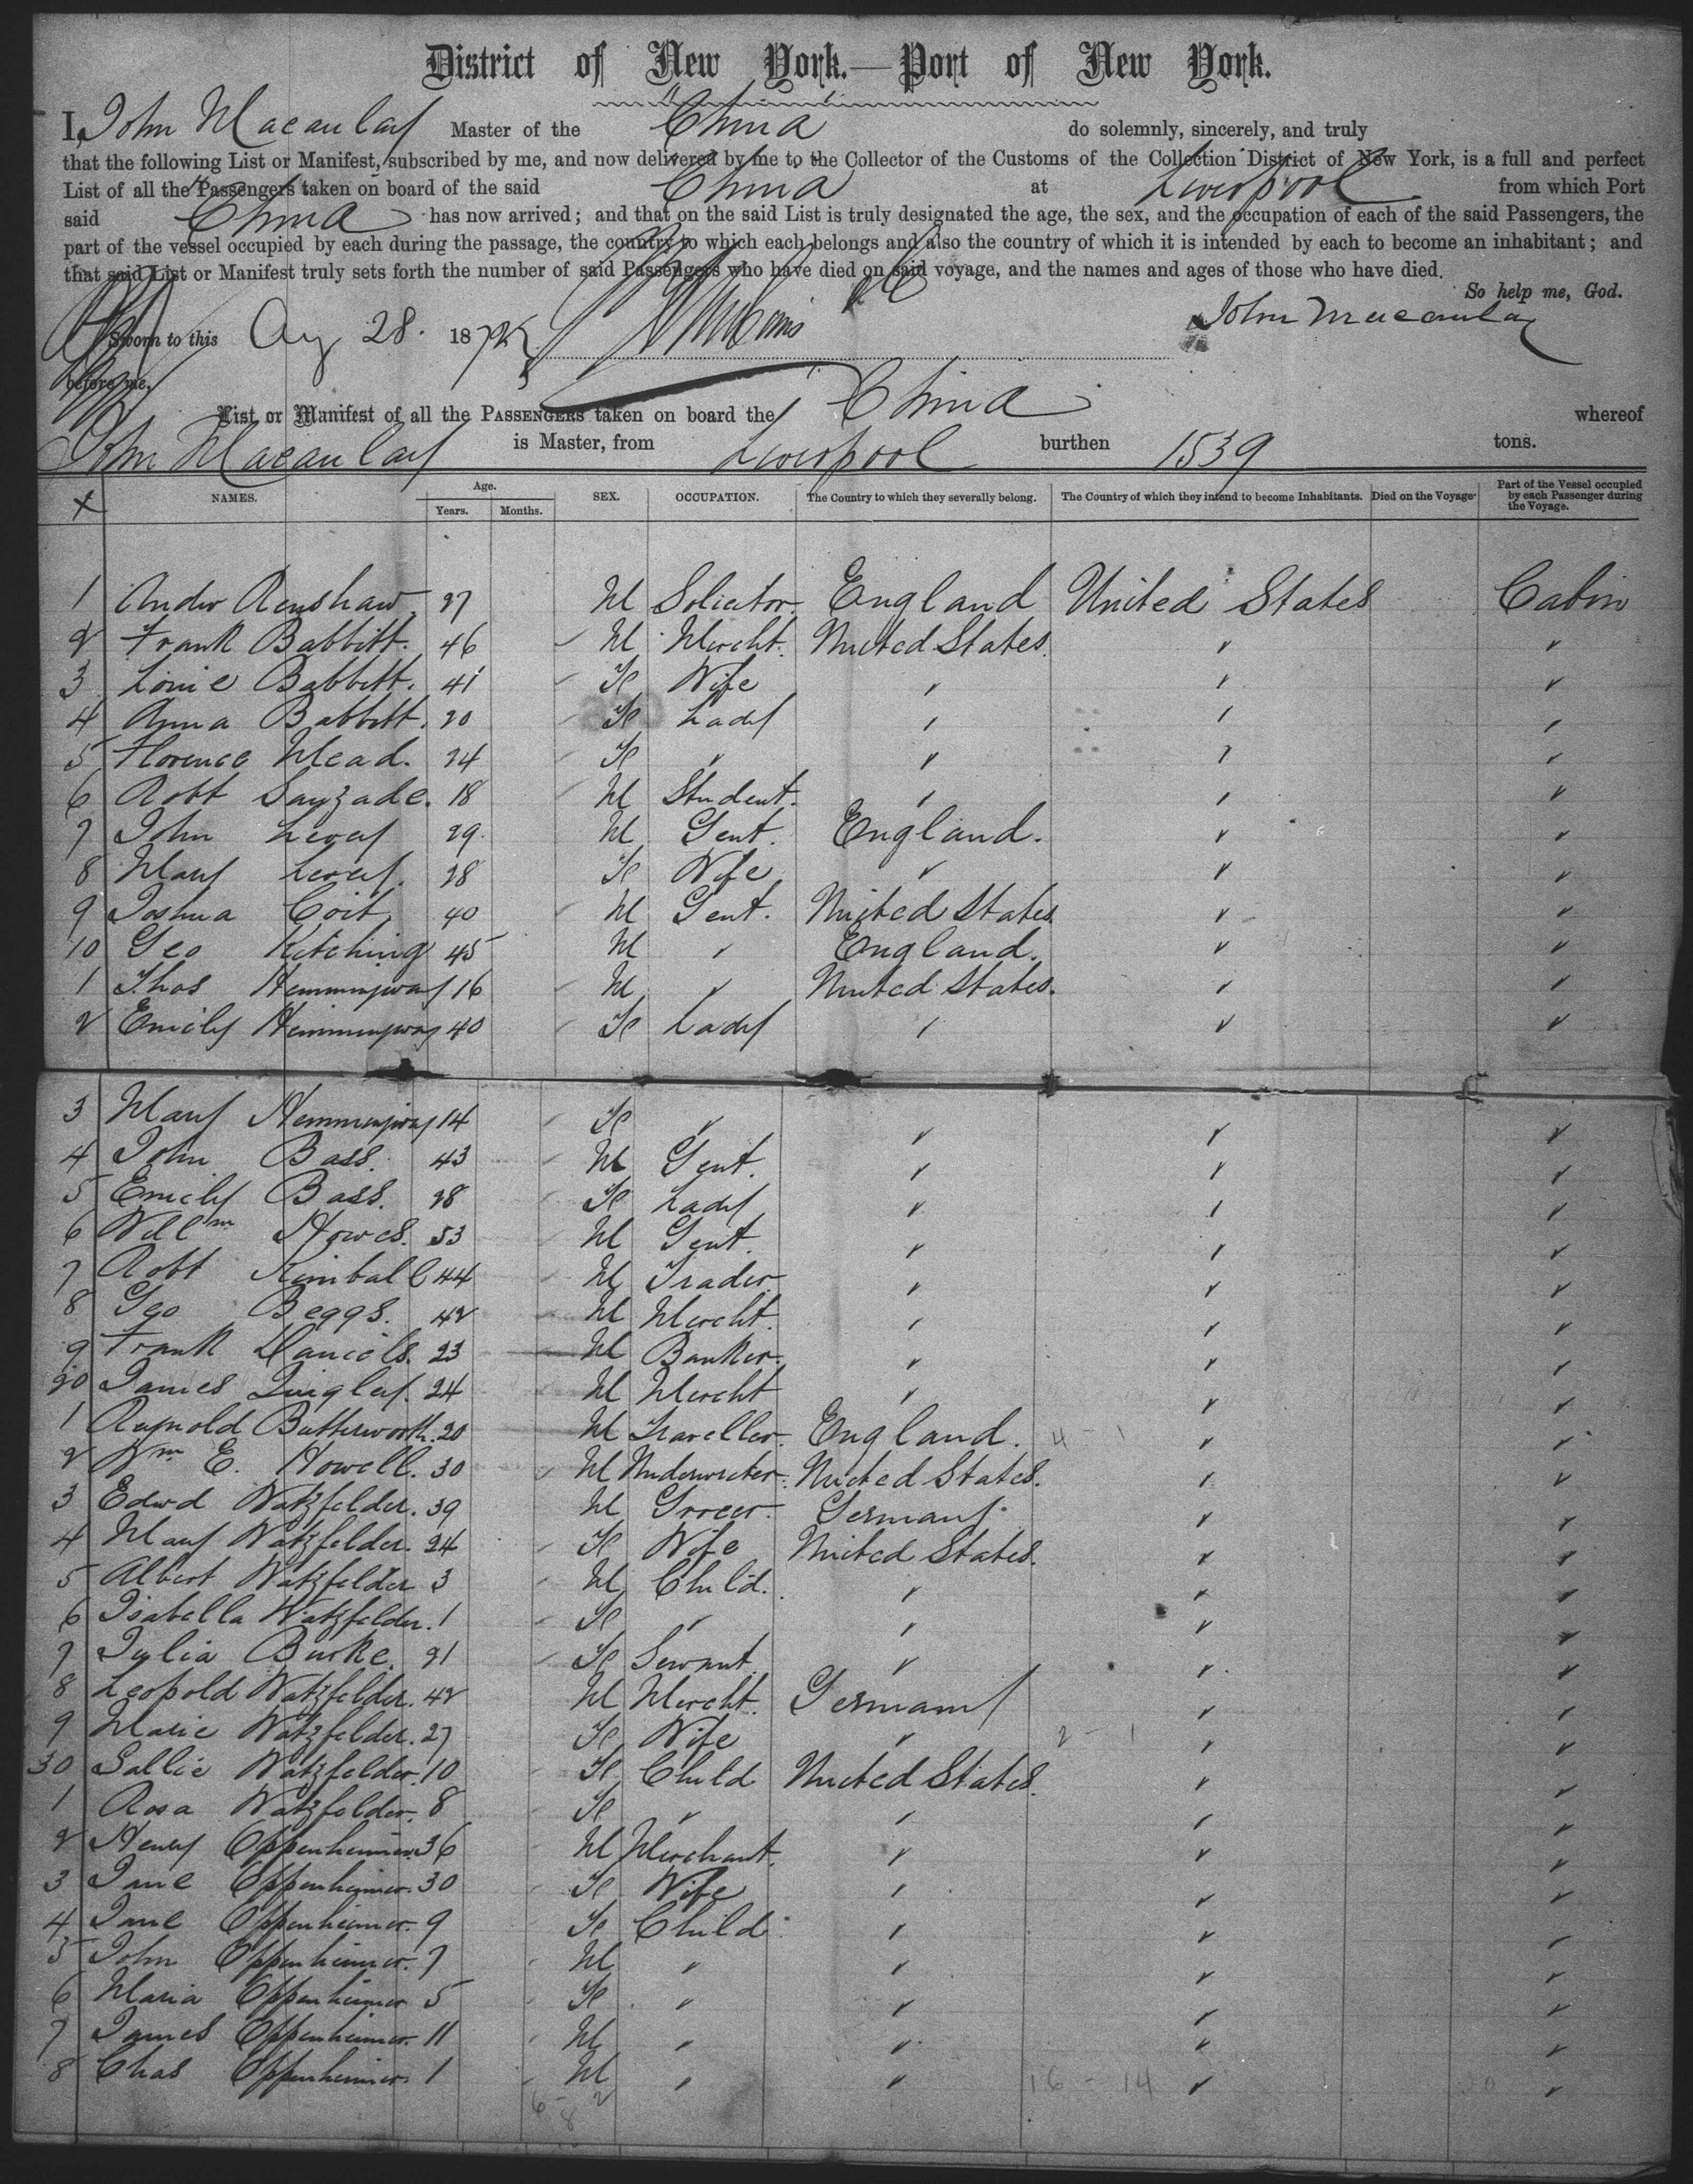 District of New York.—Port of New York.
I, John Macaulay Master of the China do solemnly, sincerely, and truly
that the following List or Manifest, subscribed by me, and now delivered by me to the Collector of the Customs of the Collection District of New York, is a full and perfect
List of all the Passengers taken on board of the said China at Liverpool from which Port
said China has now arrived; and that on the said List is truly designated the age, the sex, and the occupation of each of the said Passengers, the
part of the vessel occupied by each during the passage, the country to which each belongs and also the country of which it is intended by each to become an inhabitant; and
that said List or Manifest truly sets forth the number of said Passengers who have died on said voyage, and the names and ages of those who have died.
So help me, God.
Sworn to this Aug 28. 187 John Macaulay
before me,
List or Manifest of all the PASSENGERS taken on board the China whereof
John Macaulay is Master, from Liverpool burthen 1539 tons.
X NAMES. Age. Years. Months. SEX. OCCUPATION. The Country to which they severally belong. The Country of which they intend to become Inhabitants. Died on the Voyage. Part of the Vessel occupied by each Passenger during the Voyage.
1 Andw Renshaw 27 M Solicitor. England United States Cabin
2 Frank Babbitt. 46 M Mercht. United States. " "
3 Louie Babbitt. 41 Fe Wife " " "
4 Anna Babbitt. 20 Fe Lady " " "
5 Florence Mead. 24 Fe " " " "
6 Robt 18 M Student. " " "
7 John 29. M Gent. England. " "
8 Mary 28 Fe Wife " " "
9 Joshua Coit 40 M Gent. United States. " "
10 Geo Kitching 45 M " England. " "
1 Thos Hemmingway 16 M " United States. " "
2 Emily Hemmingway 40 Fe Lady " " "
3 Mary Hemmingway 14 Fe " " " "
4 John Bass. 43 M Gent. " " "
5 Emily Bass. 28 Fe Lady " " "
6 Willm Howes. 53 M Gent. " " "
7 Robt Kimball 44 M Trader. " " "
8 Geo Beggs. 42 M Mercht. " " "
9 Frank Daniels. 23 M Banker. " " "
20 James Quigley. 24 M Mercht " " "
1 Reynold Butterworth. 20 M Traveller. England. 4 - 1 " "
2 Wm E. Howell. 30 M Underwriter. United States. " "
3 Edwd Watzfelder. 39 M Grocer. Germany " "
4 Mary Watzfelder. 24 Fe Wife United States. " "
5 Albert Watzfelder 3 M Child. " " "
6 Isabella Watzfelder. 1 Fe " " " "
7 Julia Burke. 21 Fe Servant " " "
8 Leopold Watzfelder. 42 M Mercht. Germany " "
9 Marie Watzfelder. 27 Fe Wife " 2 - 1 " "
30 Sallie Watzfelder. 10 Fe Child United States. " "
1 Rosa Watzfelder. 8 Fe " " " "
2 Henry Oppenheimer. 36 M Merchant. " " "
3 Jane Oppenheimer. 30 Fe Wife " " "
4 Jane Oppenheimer. 9 Fe Child " " "
5 John Oppenheimer. 7 M " " " "
6 Maria Oppenheimer 5 Fe " " " "
7 James Oppenheimer. 11 M " " " "
8 Chas Oppenheimer. 1 M " " 16 - 14 " "
6 - 2
8